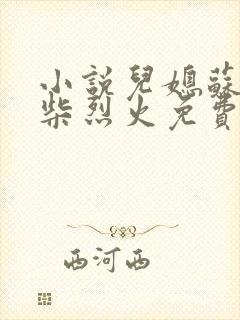 小説兒媳蘇
柴烈火免費
西河西